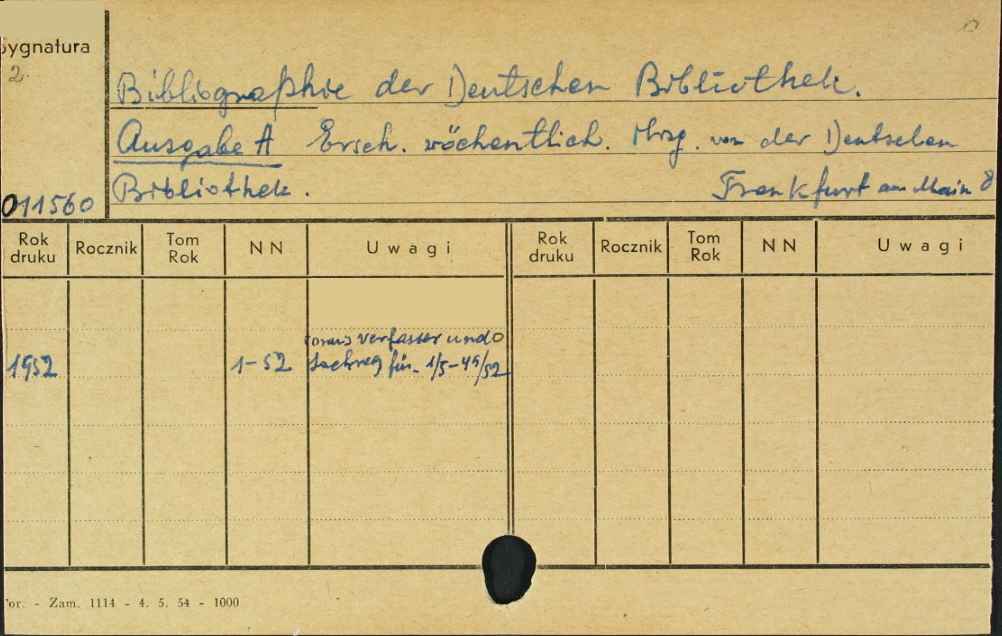 Sygnatura
2.
Bibliographie der Deutschen Bibliothek.
Ausgabe A Ersch. wöchentlich. Hrsg. von der Deutschen
Bibliothek. Frankfurt am Main 8
011560
Rok druku Rocznik Tom Rok NN Uwagi Rok druku Rocznik Tom Rok NN Uwagi
verfasser und
1952 1-52 Sachreg für 1/5-49/52
or. - Zam. 1114 - 4. 5. 54 - 1000